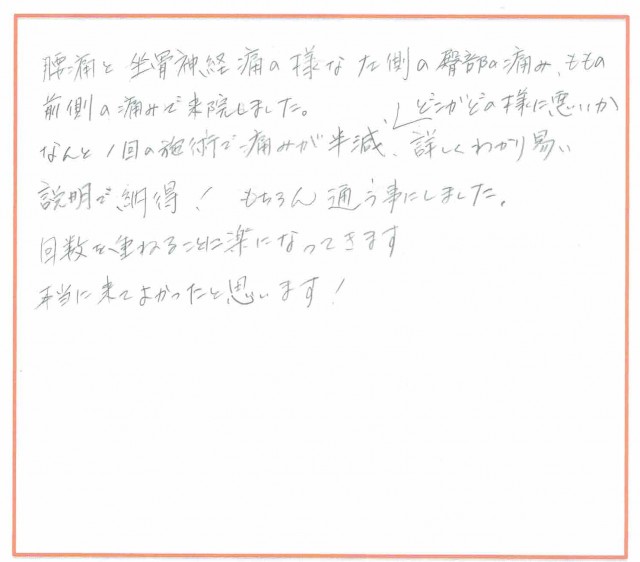 腰痛と坐骨神経痛の様な左側の臀部の痛み、ももの
前側の痛みで来院しました。
どこがどの様に悪いか
なんと1回の施術で痛みが半減、詳しくわかり易い
説明で納得！ もちろん通う事にしました。
回数を重ねるごとに楽になってきます
本当に来てよかったと思います！